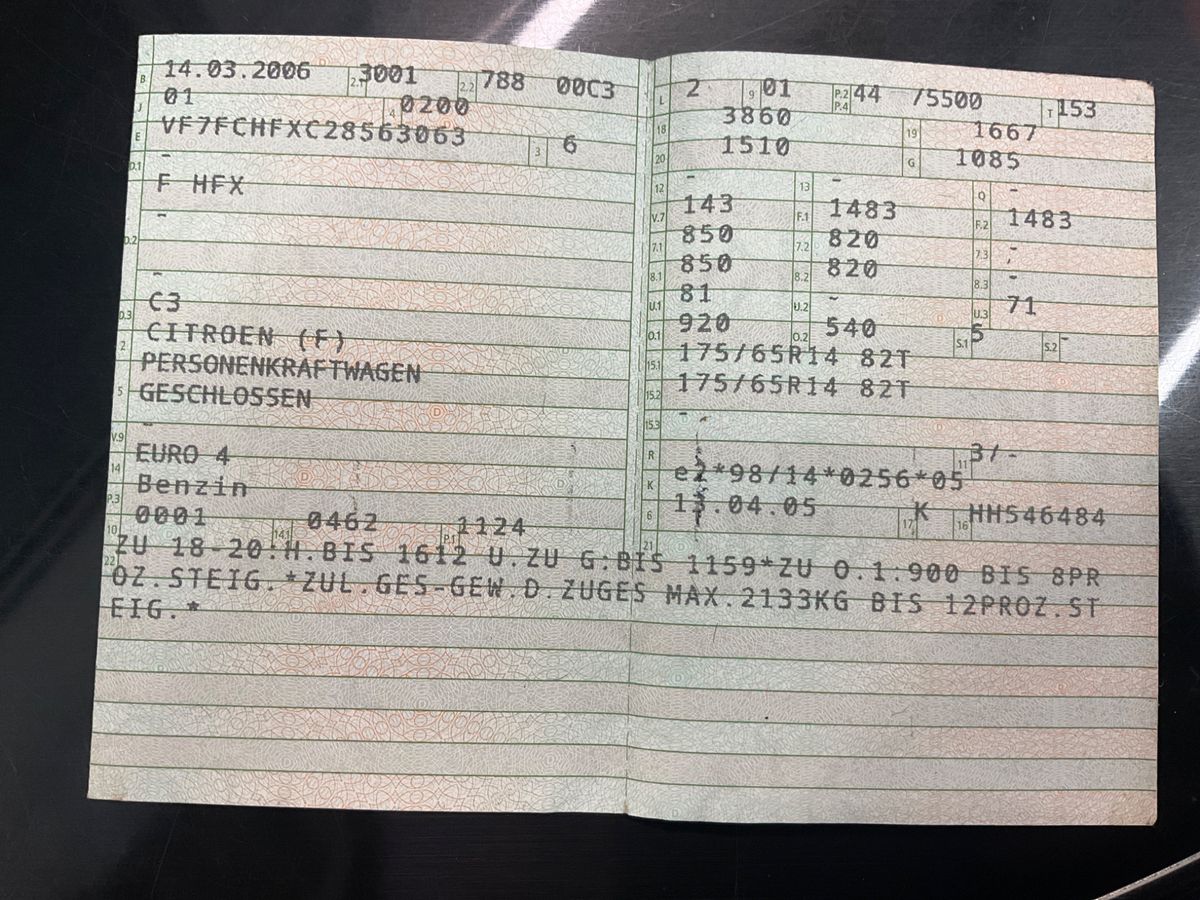 B 14.03.2006 2.1 3001 2.2 788 00C3
J 01 4 0200
E VF7FCHFXC28563063 3 6
D.1 -
F HFX
-
D.2
-
D.3 C3
2 CITROEN (F)
5 PERSONENKRAFTWAGEN
GESCHLOSSEN
V.9 -
14 EURO 4
P.3 Benzin
10 0001 14.1 0462 P.1 1124
L 2 9 01 P.2 P.4 44 /5500 T 153
18 3860 19 1667
20 1510 G 1085
12 - 13 - Q -
V.7 143 F.1 1483 F.2 1483
7.1 850 7.2 820 7.3 -
8.1 850 8.2 820 8.3 -
U.1 81 U.2 - U.3 71
O.1 920 O.2 540 S.1 5 S.2 -
15.1 175/65R14 82T
15.2 175/65R14 82T
15.3 -
R 11 3/-
K e2*98/14*0256*05
6 13.04.05 17 K 16 HH546484
21
22 ZU 18-20:H.BIS 1612 U.ZU G:BIS 1159*ZU O.1:900 BIS 8PR
OZ.STEIG.*ZUL.GES-GEW.D.ZUGES MAX.2133KG BIS 12PROZ.ST
EIG.*